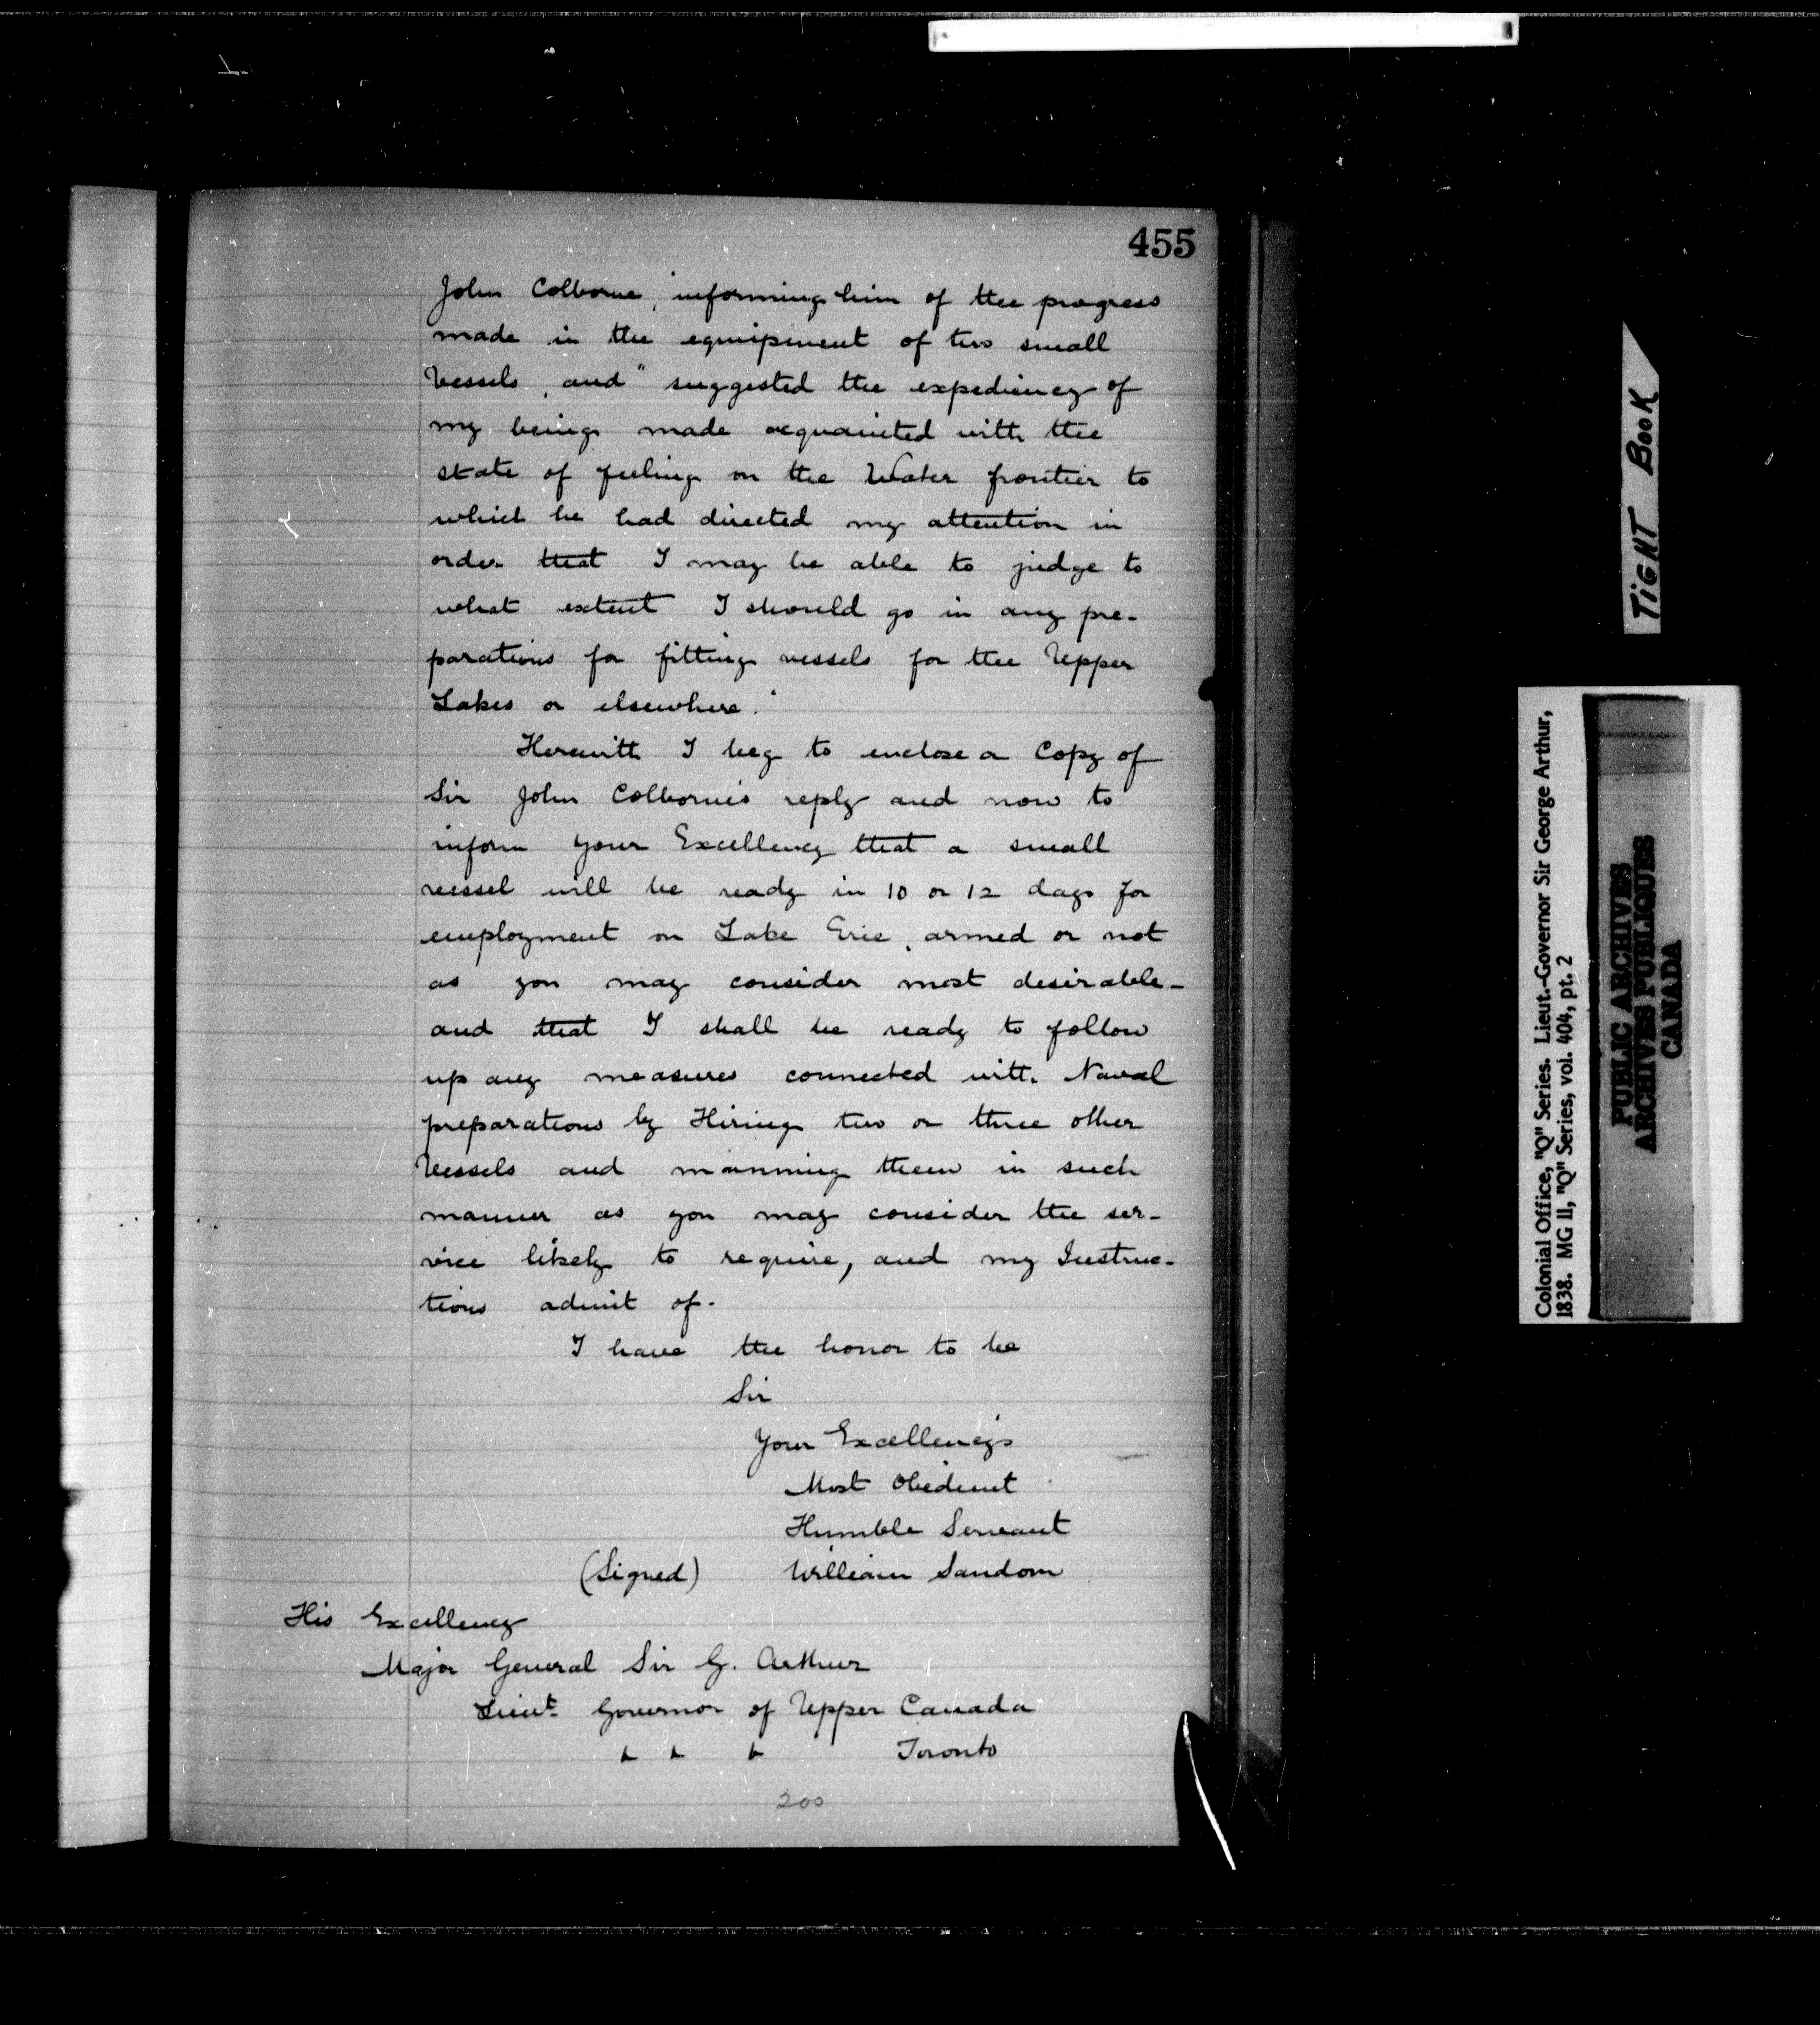 455
John Colborne, informing him of the progress
made in the equipment of two small
Vessels, and "suggested the expediency of
my being made acquainted with the
state of feeling on the Water frontier to
which he had directed my attention in
order that I may be able to judge to
what extent I should go in any pre-
parations for fitting vessels for the Upper
Lakes or elsewhere."
Herewith I beg to enclose a Copy of
Sir John Colborne's reply and now to
inform your Excellency that a small
vessel will be ready in 10 or 12 days for
employment on Lake Erie, armed or not
as you may consider most desirable-
and that I shall be ready to follow
up any measures connected with Naval
preparations by Hiring two or three other
Vessels and manning them in such
manner as you may consider the ser-
vice likely to require, and my Instruc-
tions admit of.
I have the honor to be
Sir
Your Excellency's
Most Obedient
Humble Servant
(Signed) William Sandom
His Excellency
Major General Sir G. Arthur
Lieut. Governor of Upper Canada
Toronto
200
TIGHT BOOK
Colonial Office, "Q" Series. Lieut.-Governor Sir George Arthur,
1838. MG 11, "Q" Series, vol. 404, pt. 2
PUBLIC ARCHIVES
ARCHIVES PUBLIQUES
CANADA